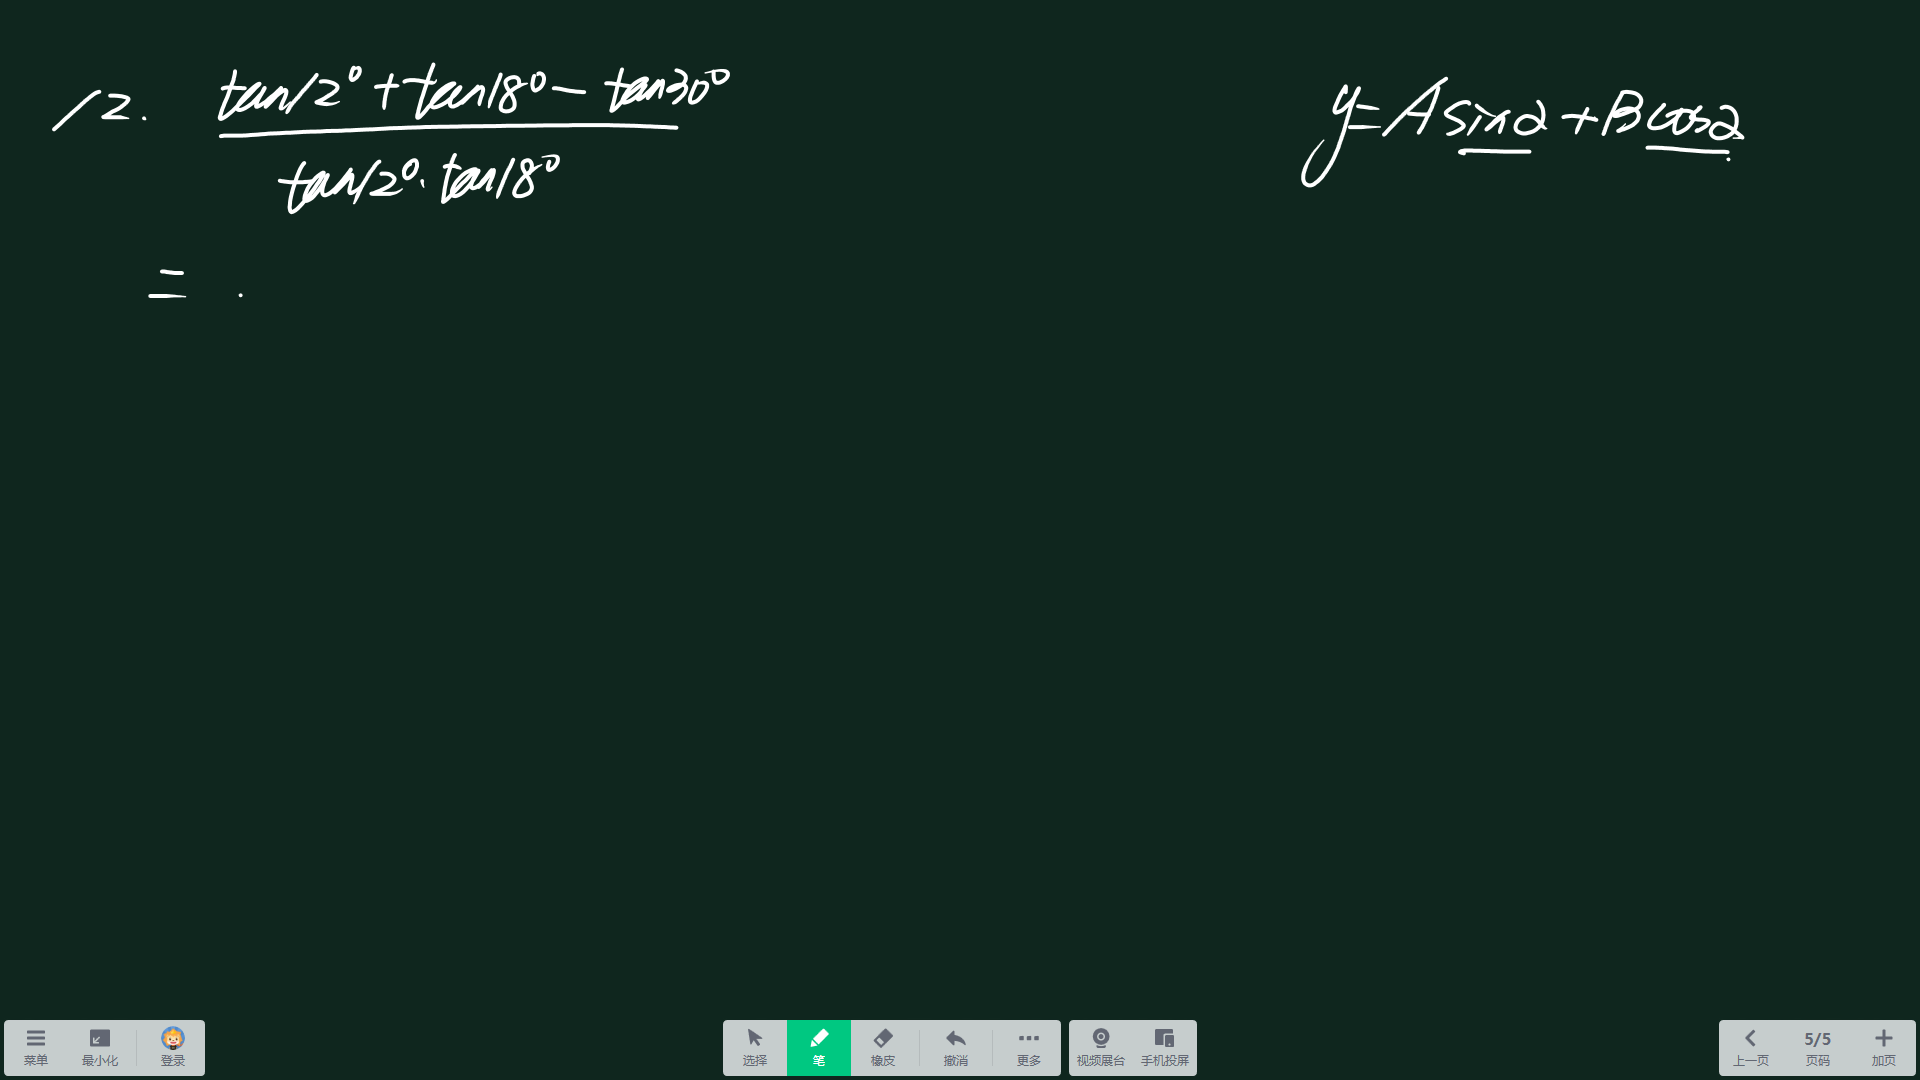 12. tan12° + tan18° − tan30°
tan12° · tan18°
= .
y = A sin2 + B cos2
菜单 最小化 登录 选择 笔 橡皮 撤消 更多 视频展台 手机投屏 上一页 5/5 页码 加页